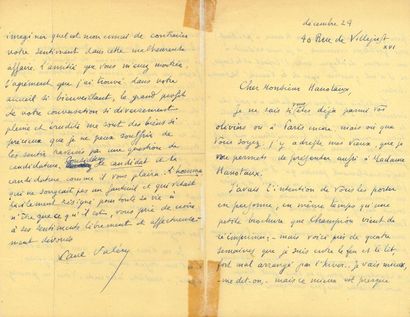 decembre 29
40 Rue de Villejust
XVI
Cher Monsieur Hanotaux
Je ne sais si vous êtes déjà parmi vos
oliviers ou à Paris encore mais où que
vous soyez, j'y adresse mes vœux, que je
vous permets de présenter aussi à Madame
Hanotaux.
J'avais l'intention de vous les porter
en personne, en même temps qu'une
petite brochure que Champion vient de
réimprimer, - mais voici près de quatre
semaines que je suis entre le feu et le lit,
fort mal arrangé par l'hiver. Je vais mieux,
me dit-on, mais ce mieux est presque
imaginer quel est mon ennui de
votre sentiment dans cette malheureuse
affaire. L'amitié que vous m'avez montrée,
l'agrément que j'ai trouvé dans votre
accueil si bienveillant, le grand profit
de votre conversation si diversement
pleine et érudite me sont des biens si
précieux que je peux souffrir de
les sentir par une question de
candidature. le candidat et la
candidature comme il vous plaira. L'homme
qui ne songeait pas un fauteuil et qui s'était
facilement résigné pour toute sa vie à
n'être que ce qu'il est, vous prie de croire
à ses sentiments librement et affectueuse-
ment dévoués
Paul Valéry